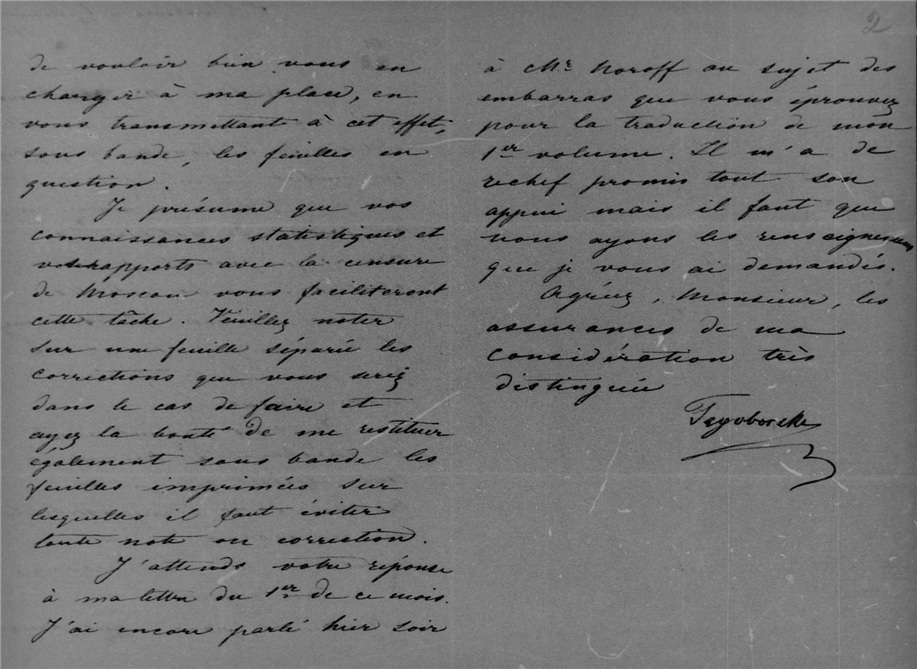 de vouloir bien vous en
charger à ma place, en
vous transmettant à cet effet,
sous bande, les feuilles en
question.
Je présume que vos
connaissances statistiques et
vos rapports avec la censure
de Moscou vous faciliteront
cette tâche. Veuillez noter
sur une feuille séparée les
corrections que vous serez
dans le cas de faire et
ayez la bonté de me restituer
également sous bande les
feuilles imprimées sur
lesquelles il faut éviter
toute note ou correction.
J'attends votre réponse
à ma lettre du 1er de ce mois.
J'ai encore parlé hier soir
2
à Mr Noroff au sujet des
embarras que vous éprouvez
pour la traduction de mon
1er volume. Il m'a de
rechef promis tout son
appui mais il faut que
nous ayons les renseignemens
que je vous ai demandés.
Agréez, Monsieur, les
assurances de ma
considération très
distinguée
Tegoborski